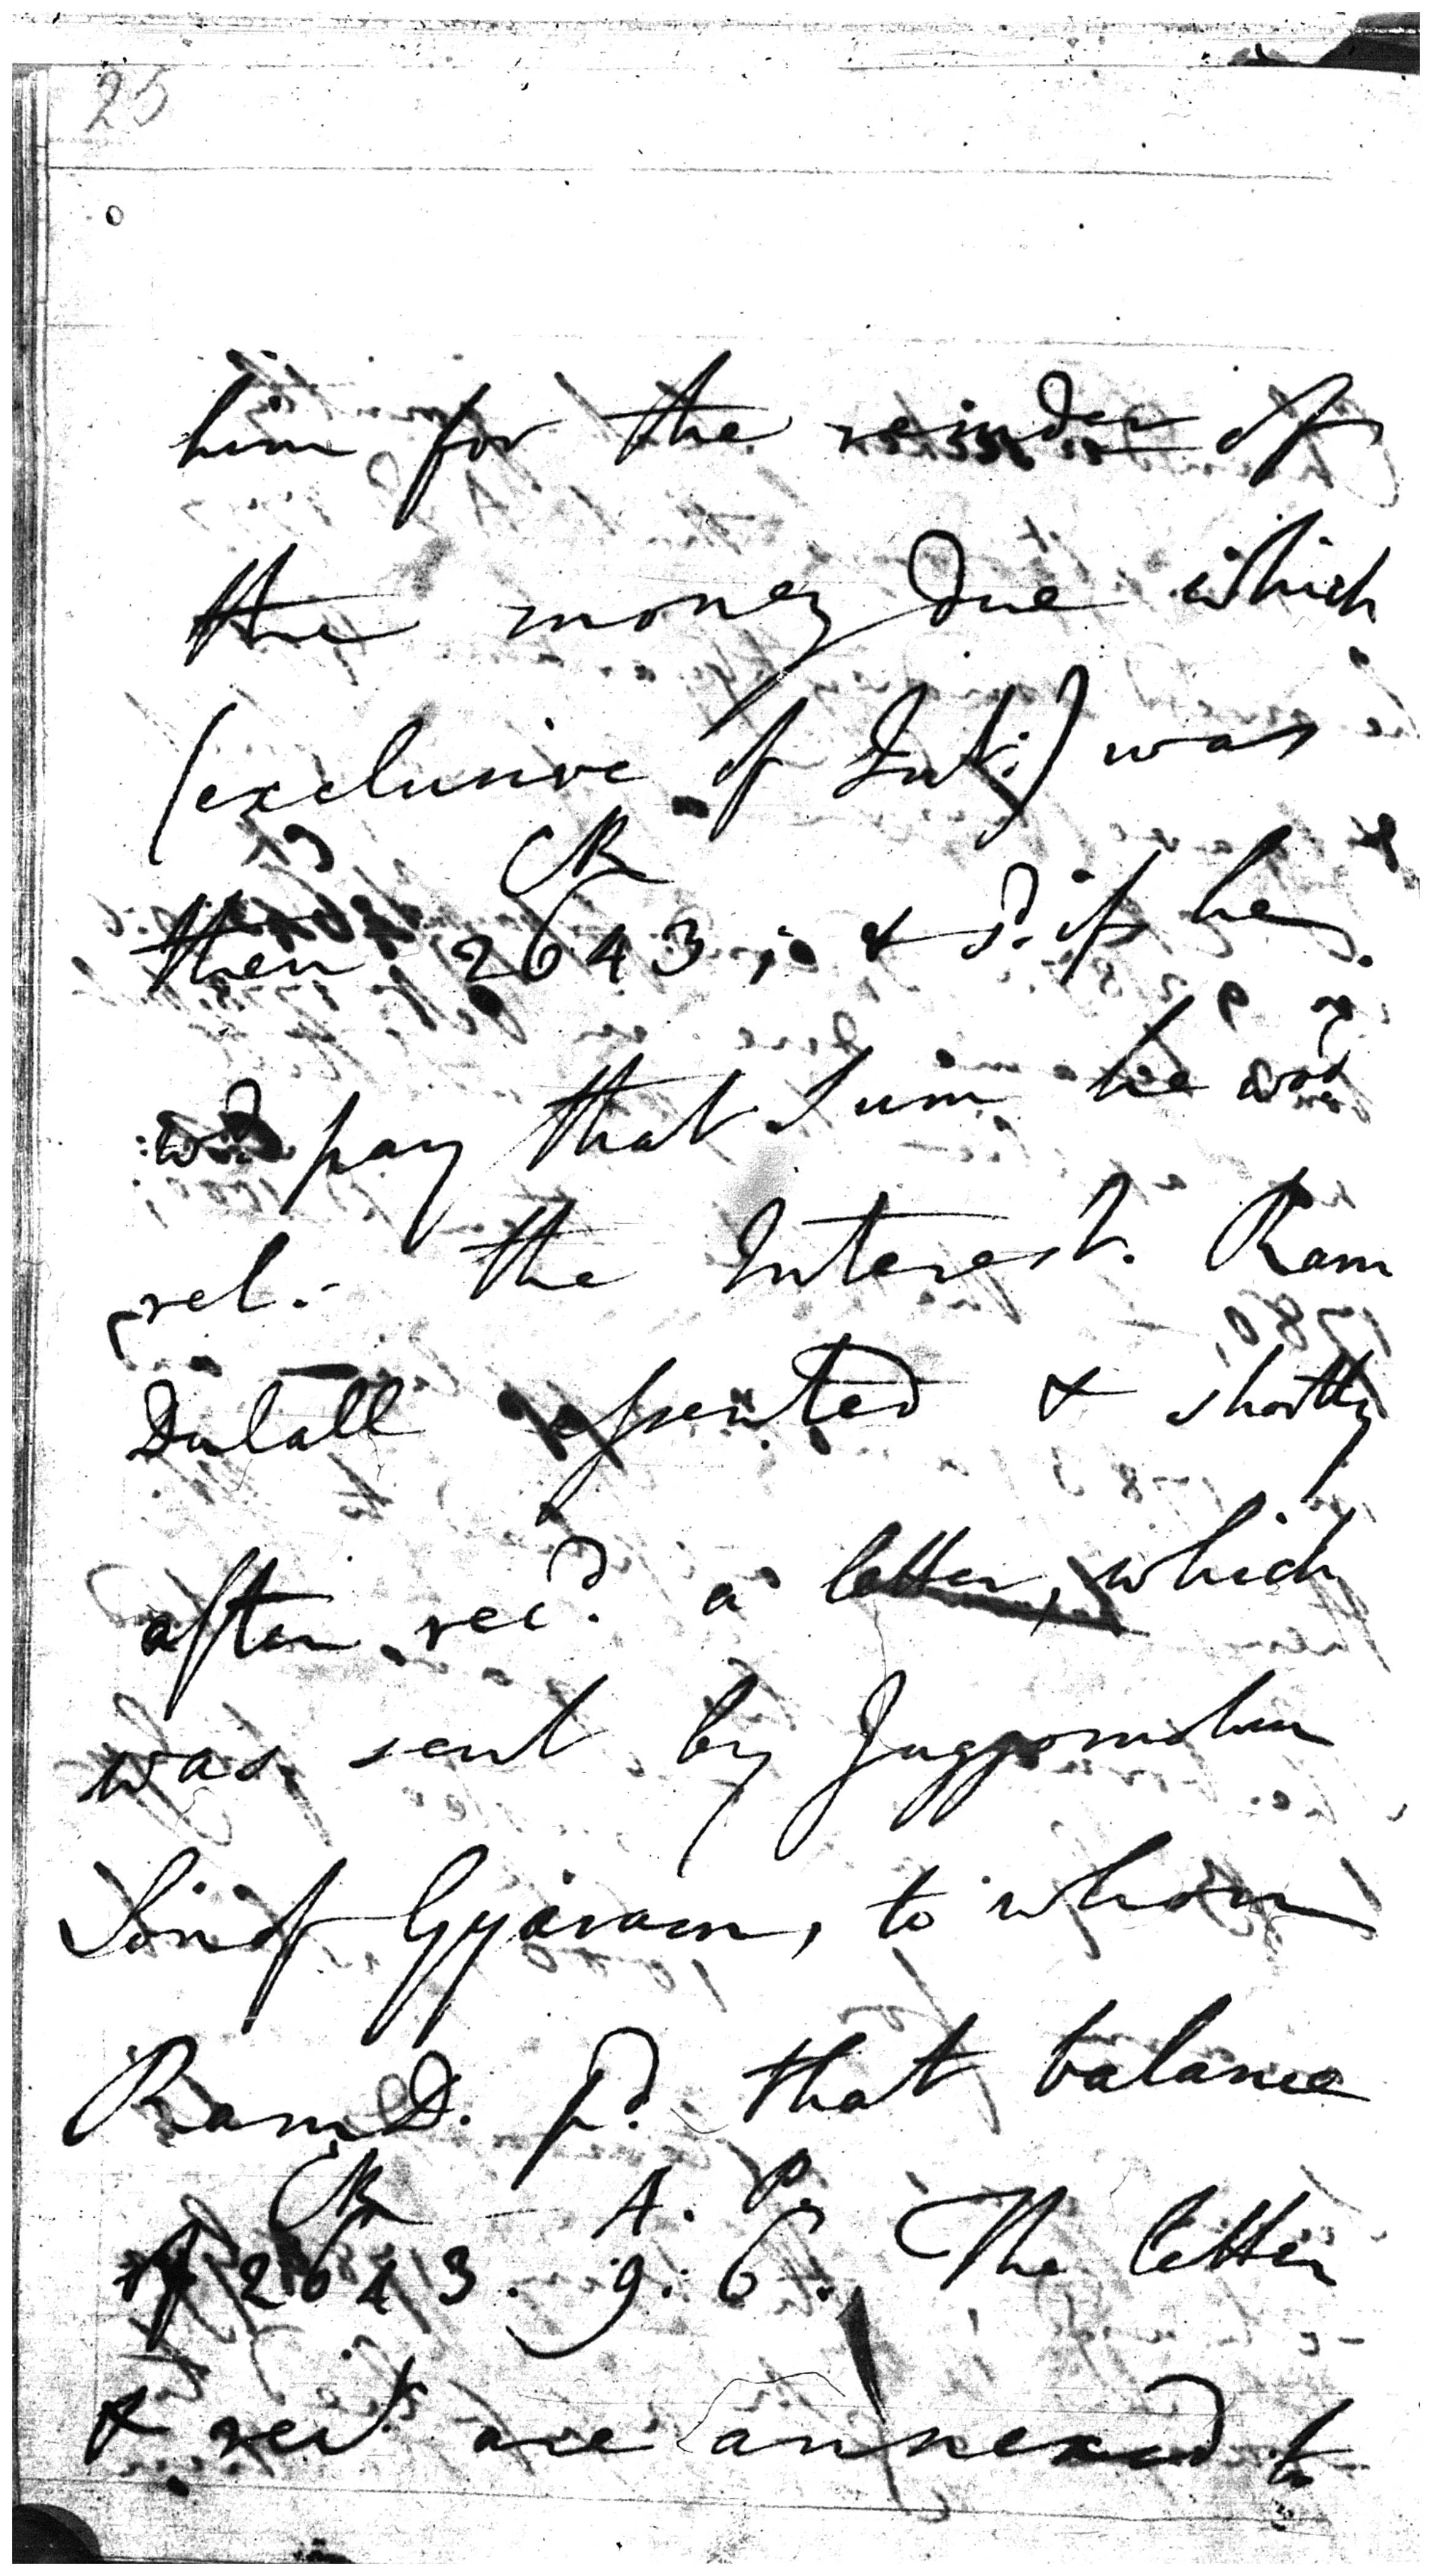 25
him for the reinder of
the money due which
(exclusive of Int:) was
CR
then 2643; & s.d if he
wd pay that Sum he wod
rel. the Interest. Ram
Dulall assented & shortly
after recd. a letter, which
was sent by Juggomohun
Son of Gyaram, to whom
Ram D. pd. that balance
CR A. P.
of 2643. 9. 6. The letter
& rect. are annexed to